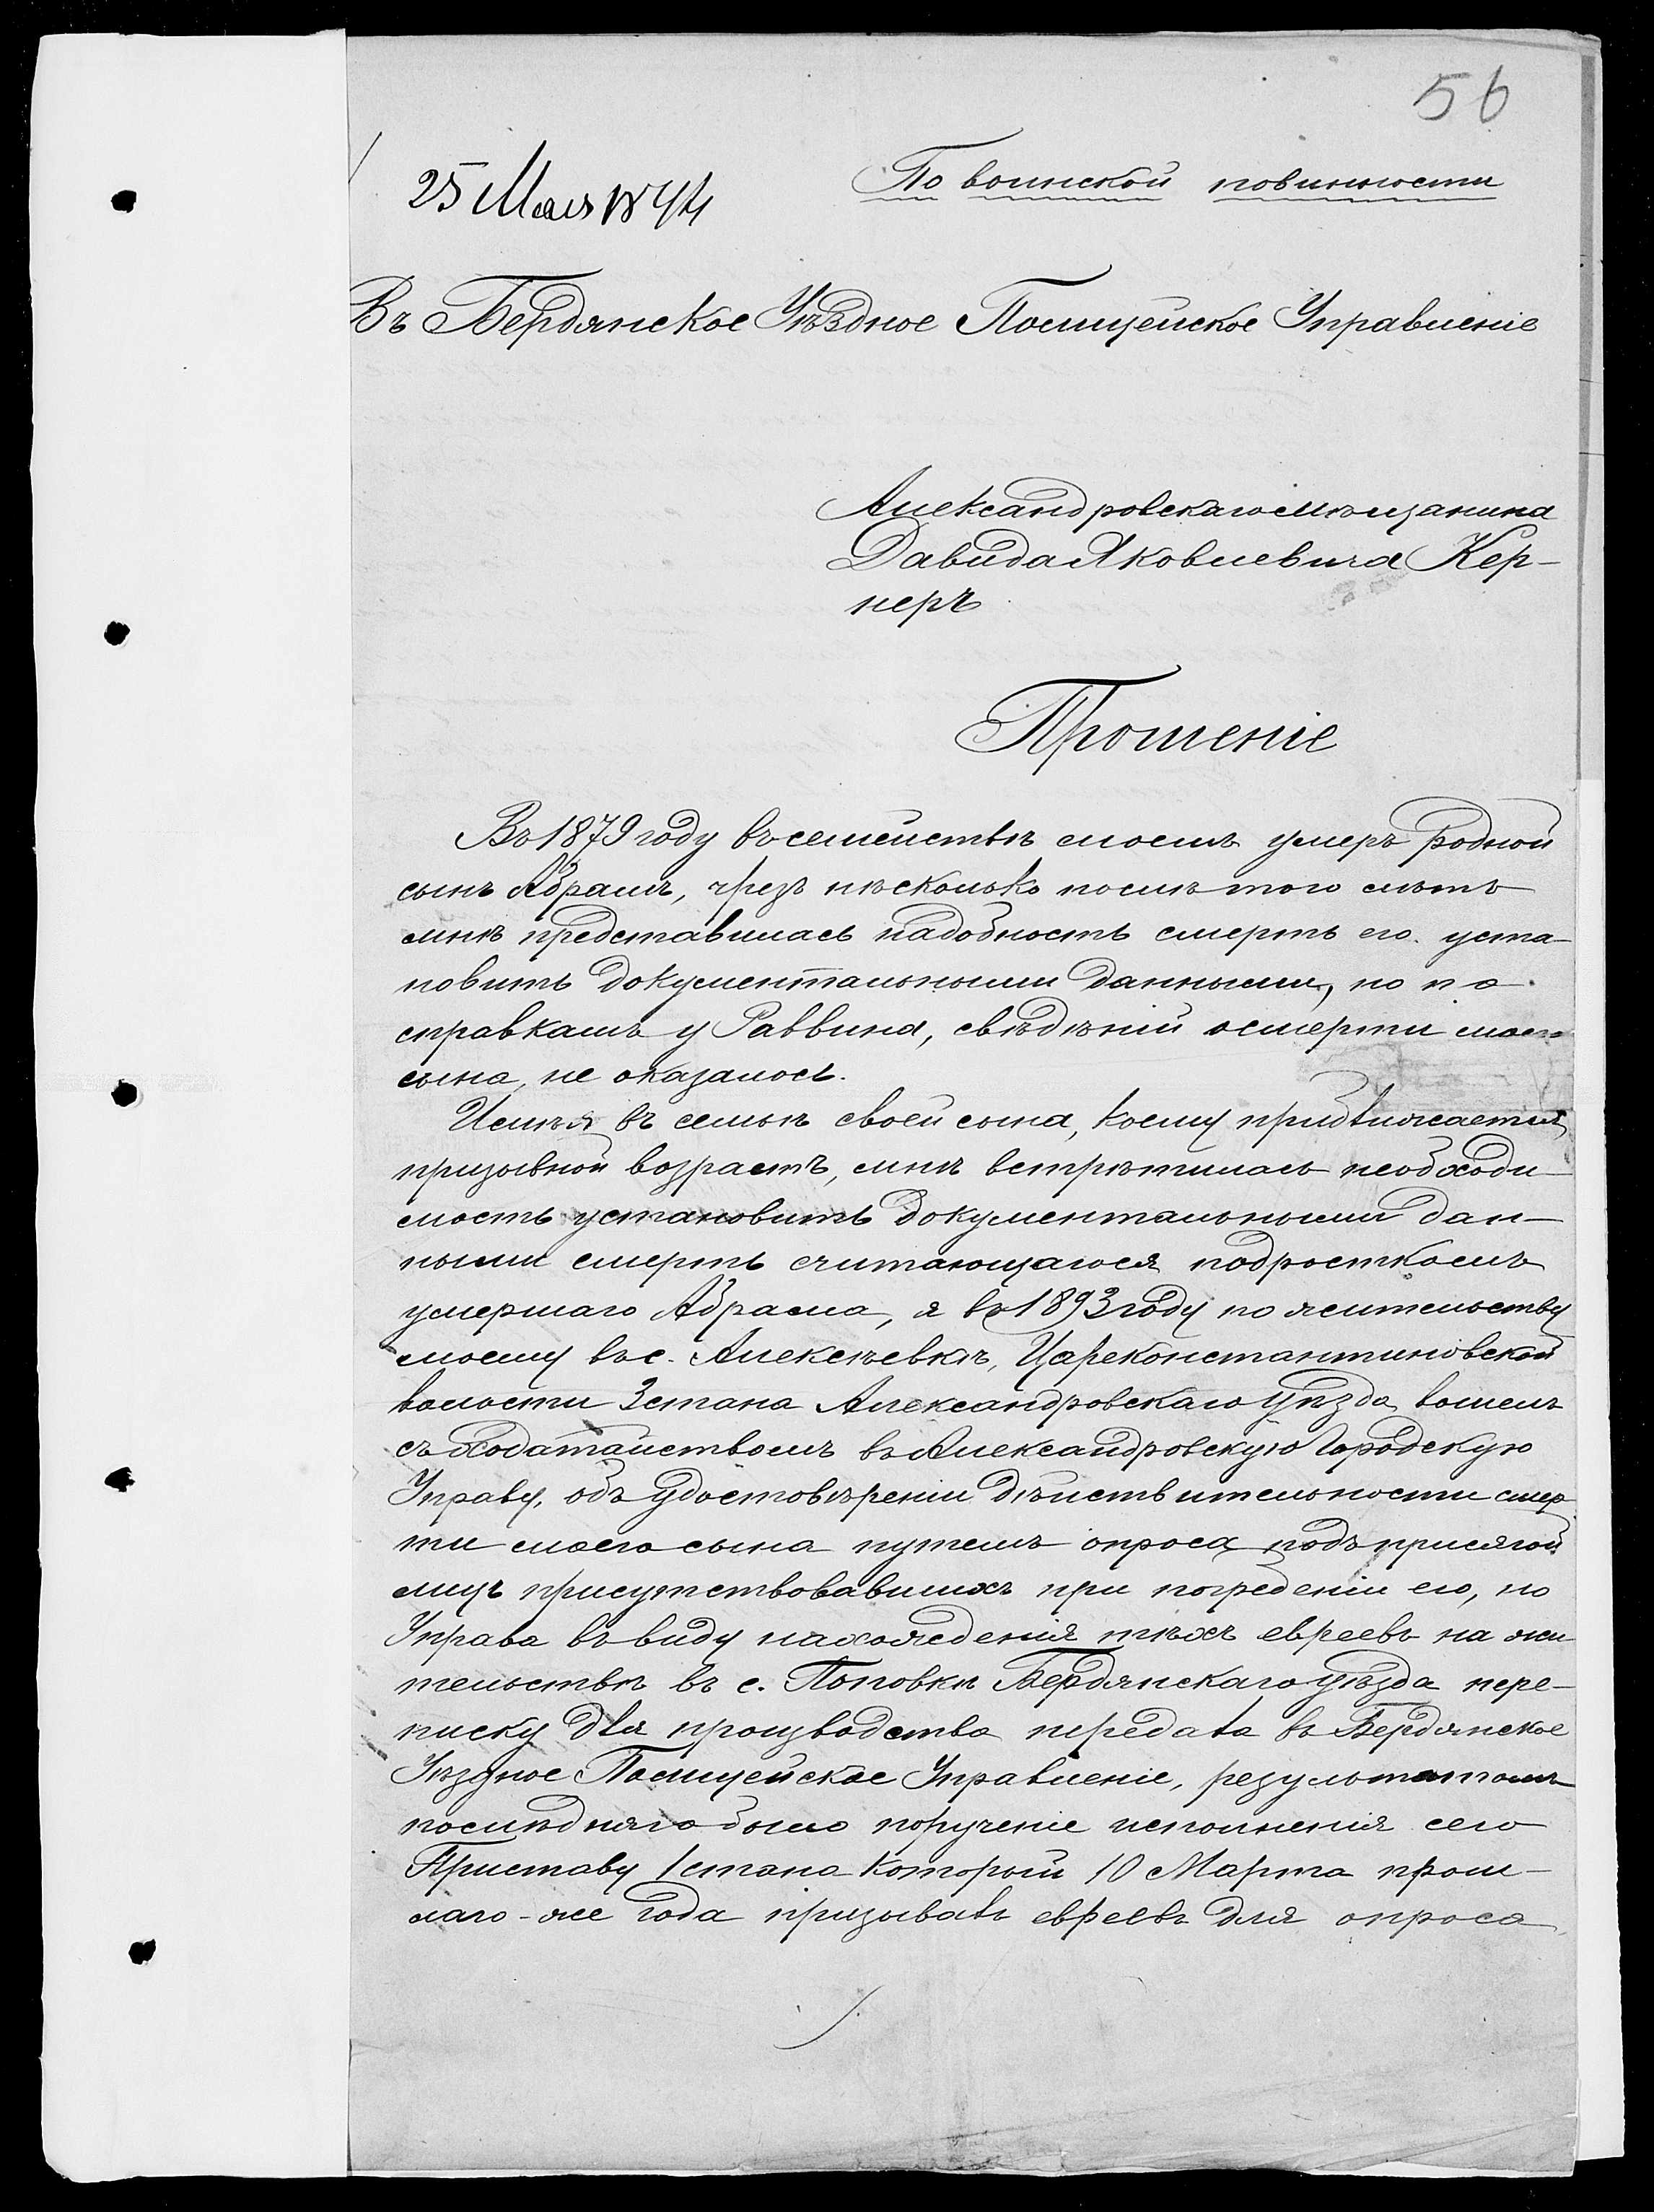 56
25 Мая 1894
По воинской повинности
Въ Бердянское Уѣздное Полицейское Управленіе
Александровскаго мѣщанина
Давида Яковлевича Кер-
неръ
Прошеніе
Въ 1879 году въ семействѣ моемъ умеръ родной
сынъ Абрамъ, чрезъ нѣсколько послѣ того лѣтъ
мнѣ представилась надобность смерть его уста-
новить документальными данными, но по
справкамъ у Раввина, свѣдѣній о смерти моего
сына, не оказалось.
Имѣя въ семьѣ своей сына, коему приближается
призывной возрастъ, мнѣ встрѣтилась необходи
мость установить документальными дан-
ными смерть считающагося подросткомъ
умершаго Абрама, я въ 1893 году по жительству
моему въ с. Алексѣевкѣ, Цареконстантиновской
волости 3 стана Александровскаго уѣзда вошелъ
съ ходатайствомъ въ Александровскую Городскую
Управу, объ удостовѣреніи дѣйствительности смер
ти моего сына путемъ опроса подъ присягой
лицъ присутствовавшихъ при погребеніи его, но
Управа въ виду нахожденія тѣхъ евреевъ на жи
тельствѣ въ с. Поповкѣ Бердянскаго уѣзда пере-
писку для производства передала въ Бердянское
Уѣздное Полицейское Управленіе, результатомъ
послѣдняго было порученіе исполненія сего
Приставу 1 стана который 10 Марта прош-
лаго-же года призывалъ евреевъ для опроса